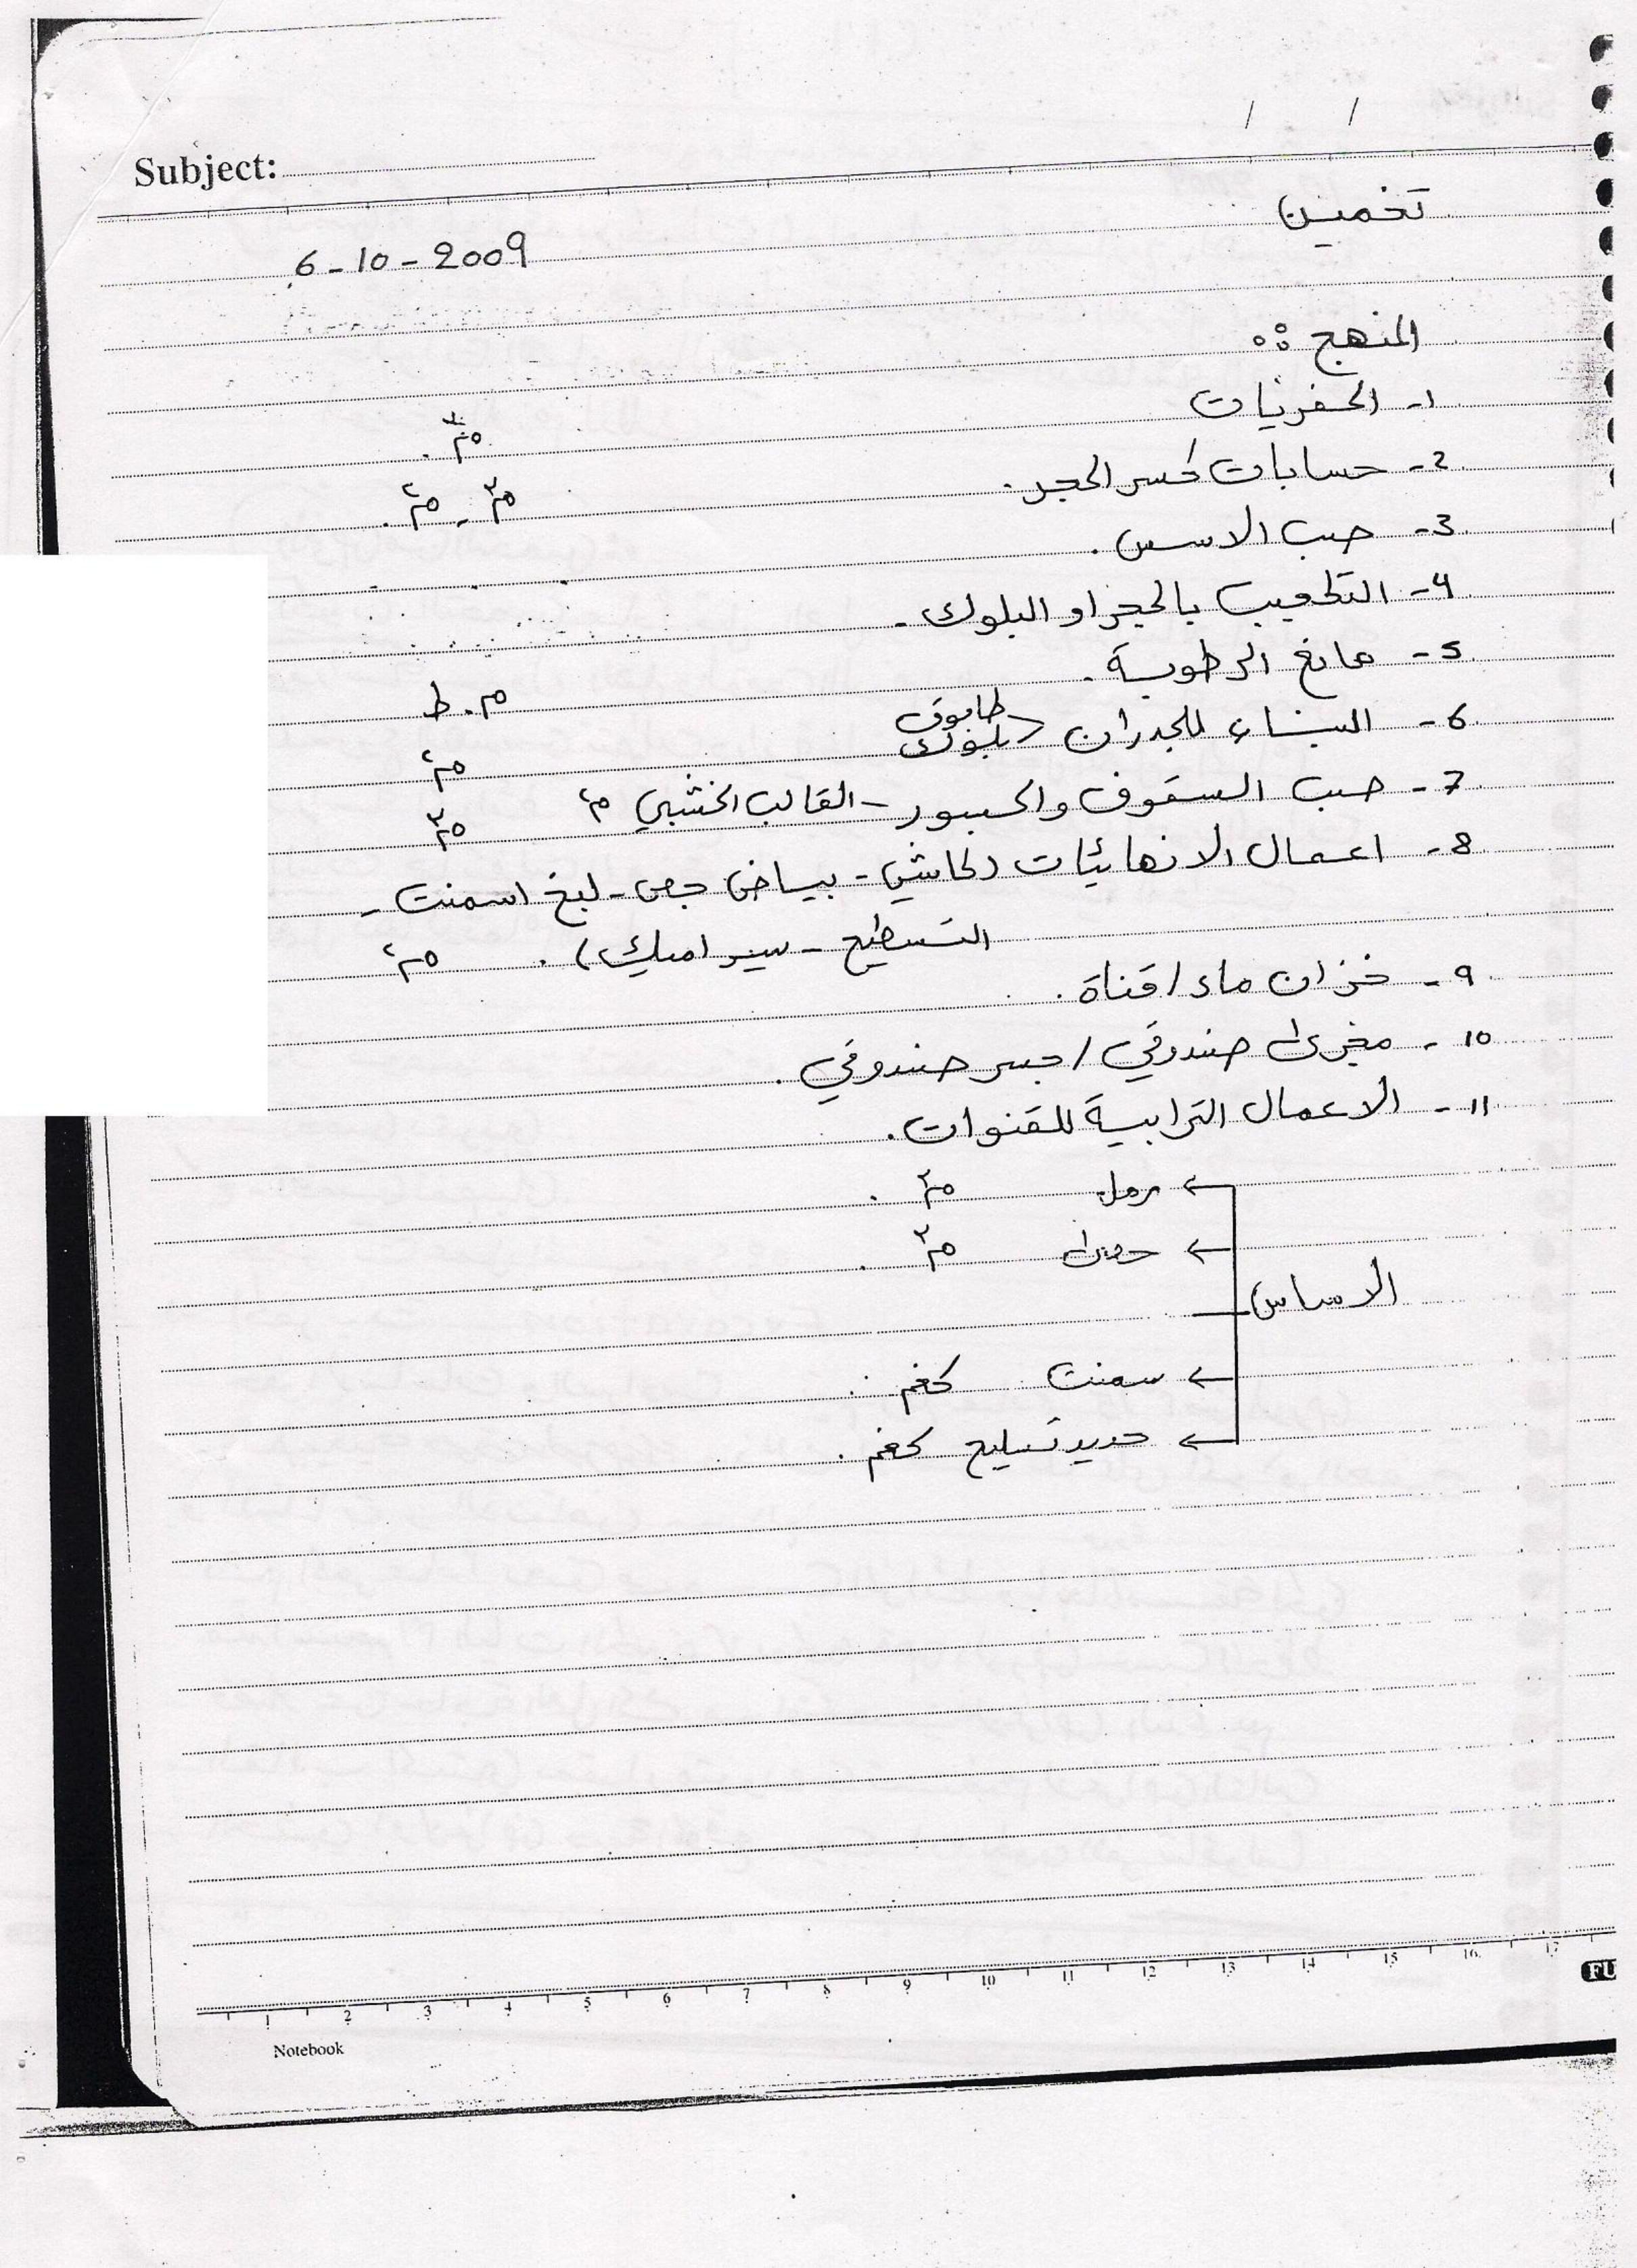 Subject:
/ /
تخمين
6-10-2009
المنهج :
1- الحفريات م³.
2- حسابات كسر الحجر. م³ - م².
3- صب الاسس.
4- التكعيب بالحجر او البلوك.
5- مانع الرطوبة. م.ط
6- البناء للجدران < طابوق
بلوك م²
7- صب السقوف والجسور - القالب الخشبي م² م³
8- اعمال الانهائيات (كاشي - بياض جص - لبخ اسمنت -
التسطيح - سيراميك). م²
9- خزان ماء / قناة.
10- مجرى صندوقي / جسر صندوقي.
11- الاعمال الترابية للقنوات.
← رمل م³.
← حصى م³.
الاساس
← سمنت كغم.
← حديد تسليح كغم.
1 2 3 4 5 6 7 8 9 10 11 12 13 14 15 16 17
FU
Notebook